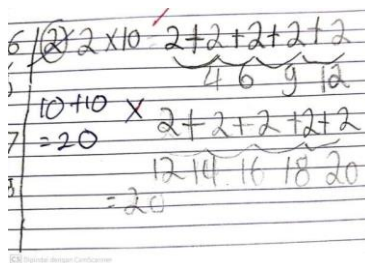 6 (2) 2 x 10 2+2+2+2+2
4 6 9 12
10+10 x 2+2+2+2+2
7 =20
12 14 16 18 20
=20
CS Dipindai dengan CamScanner